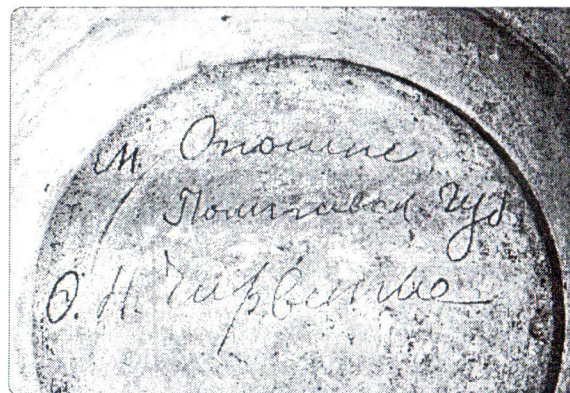 м. Опошне
Полтавск. губ.
Ѳ. Н. Чирвенко